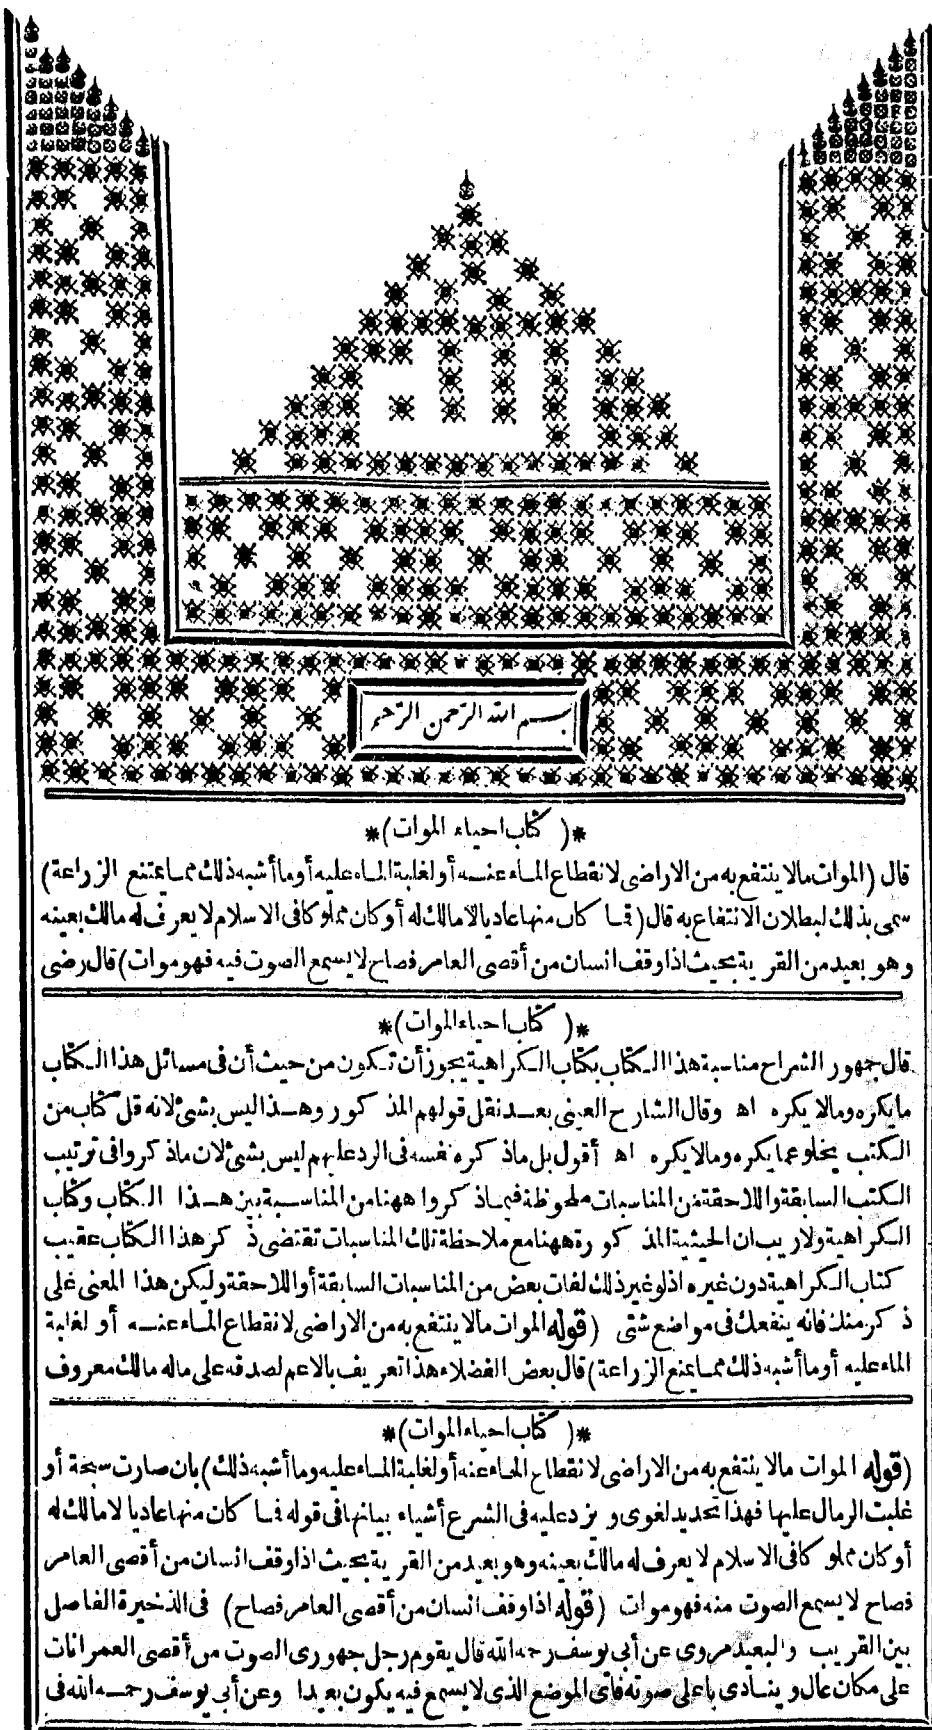 بسم الله الرحمن الرحيم
*( كتاب احياء الموات )*
قال (الموات مالا ينتفع به من الاراضى لانقطاع الماء عنه أو لغلبة الماء عليه أو ما أشبه ذلك مما يمتنع الزراعة)
سمى بذلك لبطلان الانتفاع به قال (فما كان منها عاديا لا مالك له أو كان مملوكا فى الاسلام لا يعرف له مالك بعينه
وهو بعيد من القرية بحيث اذا وقف انسان من أقصى العامر فصاح لا يسمع الصوت فيه فهو موات) قال رضى
*( كتاب احياء الموات )*
قال جمهور الشراح مناسبة هذا الكتاب بكتاب الكراهية يجوز أن تكون من حيث أن فى مسائل هذا الكتاب
ما يكره وما لا يكره اه وقال الشارح العينى بعد نقل قولهم المذكور وهذا ليس بشئ لانه قل كتاب من
الكتب يخلو عما يكره وما لا يكره اه أقول بل ما ذكره نفسه فى الرد عليهم ليس بشئ لان ما ذكروا فى ترتيب
الكتب السابقة واللاحقة من المناسبات ملحوظة فيما ذكروا ههنا من المناسبة بين هذا الكتاب وكتاب
الكراهية ولا ريب ان الحيثية المذكورة ههنا مع ملاحظة تلك المناسبات تقتضى ذكر هذا الكتاب عقيب
كتاب الكراهية دون غيره اذ لو غير ذلك لفات بعض من المناسبات السابقة أو اللاحقة وليكن هذا المعنى على
ذكر منك فانه ينفعك فى مواضع شتى (قوله الموات مالا ينتفع به من الاراضى لانقطاع الماء عنه أو لغلبة
الماء عليه أو ما أشبه ذلك مما يمنع الزراعة) قال بعض الفضلاء هذا تعريف بالاعم لصدقه على ماله مالك معروف
*( كتاب احياء الموات )*
(قوله الموات مالا ينتفع به من الاراضى لانقطاع الماء عنه أو لغلبة الماء عليه وما أشبه ذلك) بان صارت سبخة أو
غلبت الرمال عليها فهذا تحديد لغوى ويزد عليه فى الشرع أشياء بيانها فى قوله فما كان منها عاديا لا مالك له
أو كان مملوكا فى الاسلام لا يعرف له مالك بعينه وهو بعيد من القرية بحيث اذا وقف انسان من أقصى العامر
فصاح لا يسمع الصوت منه فهو موات (قوله اذا وقف انسان من أقصى العامر فصاح) فى الذخيرة الفاصل
بين القريب والبعيد مروى عن أبى يوسف رحمه الله قال يقوم رجل جهورى الصوت من أقصى العمرانات
على مكان عال وينادى باعلى صوته فأى الموضع الذى لا يسمع فيه يكون بعيدا وعن أبى يوسف رحمه الله فى